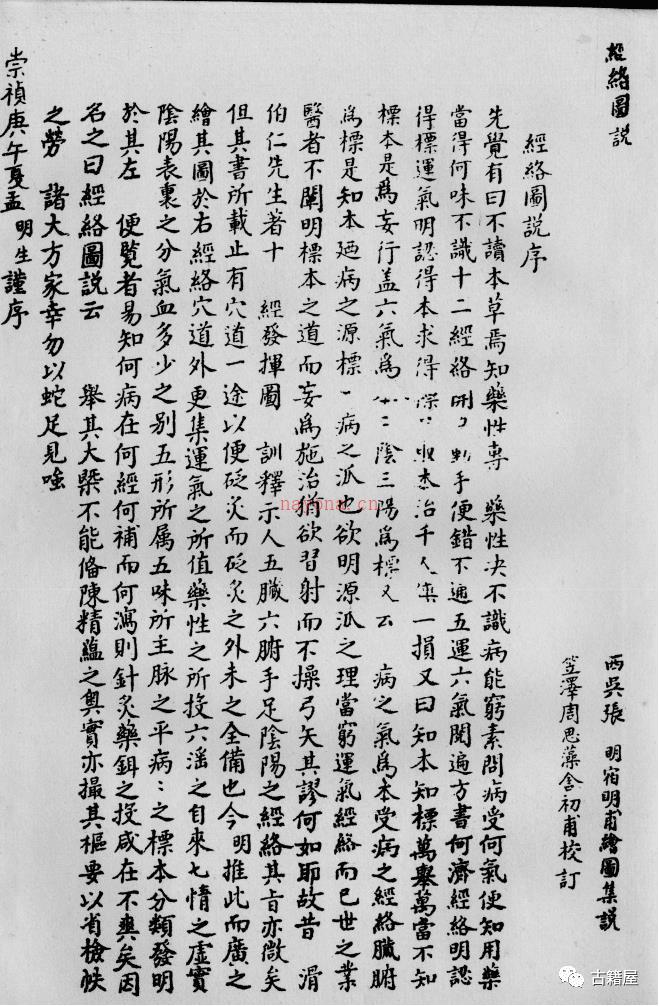 經絡圖說
西吳張 明 宿明甫繪圖集說
笠澤周思藻含初甫校訂
經絡圖說序
先覺有曰不讀本草焉知藥性專 藥性决不識病能窮素問病受何氣便知用藥
當得何味不識十二經絡開 手便錯不通五運六氣閱遍方書何濟經絡明認
得標運氣明認得本求得 取本治千人 一損又曰知本知標萬舉萬當不知
標本是為妄行盖六氣為 陰三陽為標又云 病之氣為本受病之經絡臟腑
為標是知本廼病之源標 病之派也欲明源派之理當窮運氣經絡而已世之業
醫者不闡明標本之道而妄為施治猶欲習射而不操弓矢其謬何如耶故昔 滑
伯仁先生著十 經發揮圖 訓釋示人五臟六腑手足陰陽之經絡其旨亦微矣
但其書所載止有穴道一途以便砭灸而砭灸之外未之全備也今 明推此而廣之
繪其圖於右經絡穴道外更集運氣之所值藥性之所投六淫之自來七情之虛實
陰陽表裏之分氣血多少之别五形所属五味所主脉之平病:之標本分類發明
於其左 便覽者易知何病在何經何補而何瀉則針灸藥餌之投咸在不爽矣因
名之曰經絡圖說云 舉其大槩不能俻陳精蘊之奧實亦撮其樞要以省檢帙
之勞 諸大方家幸勿以蛇足見嗤
崇禎庚午夏孟 明生謹序
nayona.cn
古籍屋